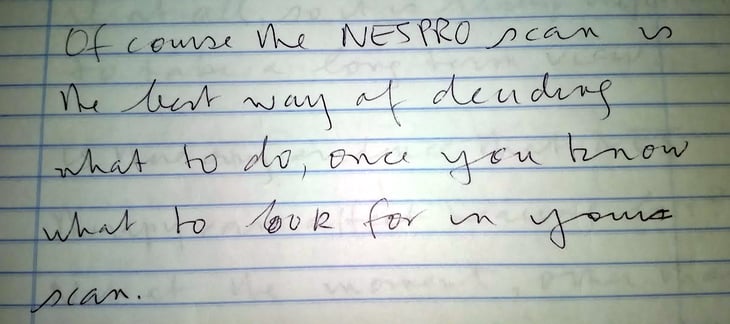 Of course the NESPRO scan is
the best way of deciding
what to do, once you know
what to look for in your
scan.